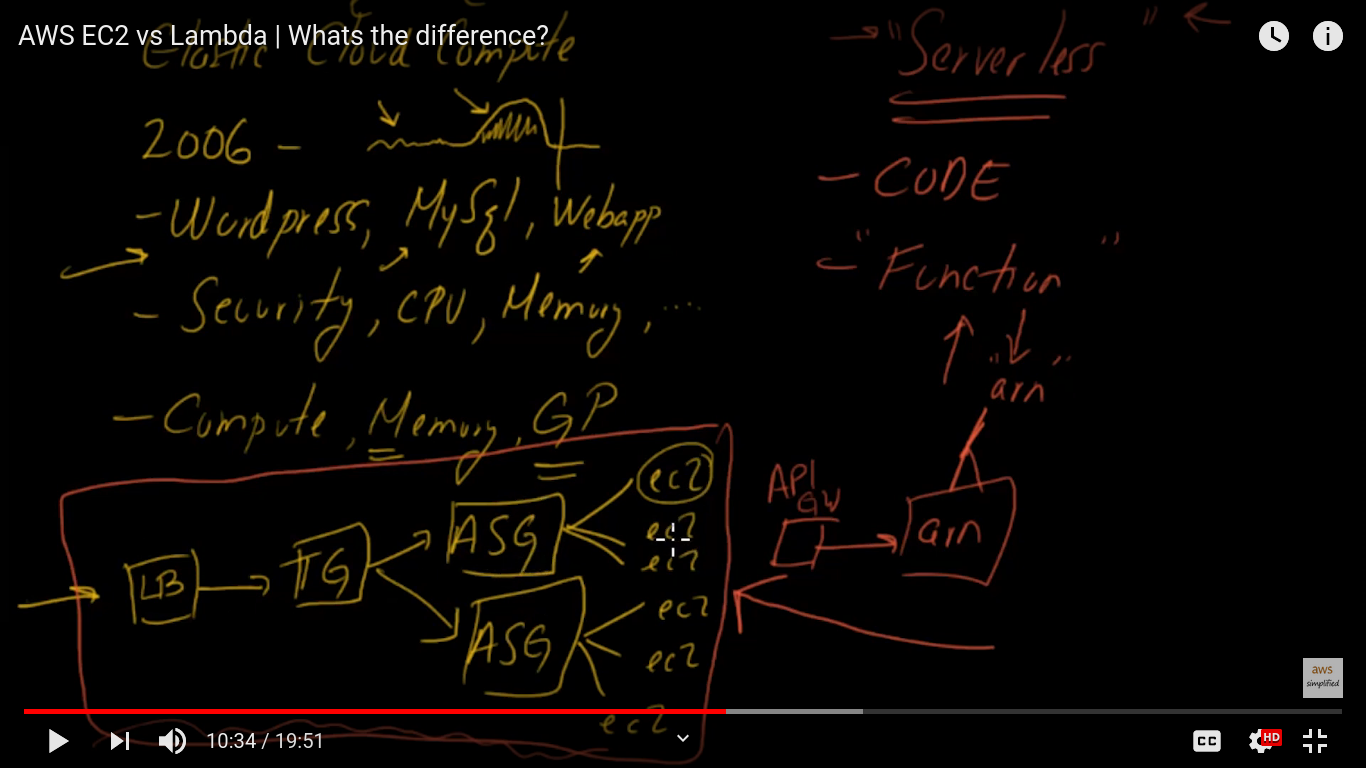 AWS EC2 vs Lambda | Whats the difference?
Elastic Cloud Compute
2006 -
- Wordpress, MySql, Webapp
- Security, CPU, Memory, ....
- Compute, Memory, GP
LB
TG
ASG
ec2
ec2
ec2
ASG
ec2
ec2
ec2
"Serverless"
- CODE
- "Function"
"arn"
API
GW
arn
aws
simplified
10:34 / 19:51
CC
HD